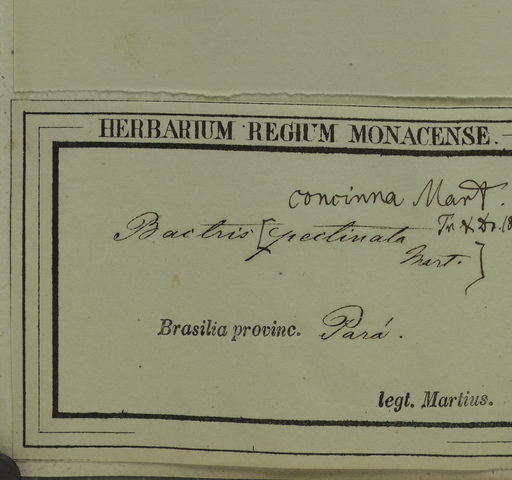 HERBARIUM REGIUM MONACENSE.
concinna Mart.
Bactris [pectinata Tr & Dr. 18
Mart.]
Brasilia provinc. Pará.
legt. Martius.